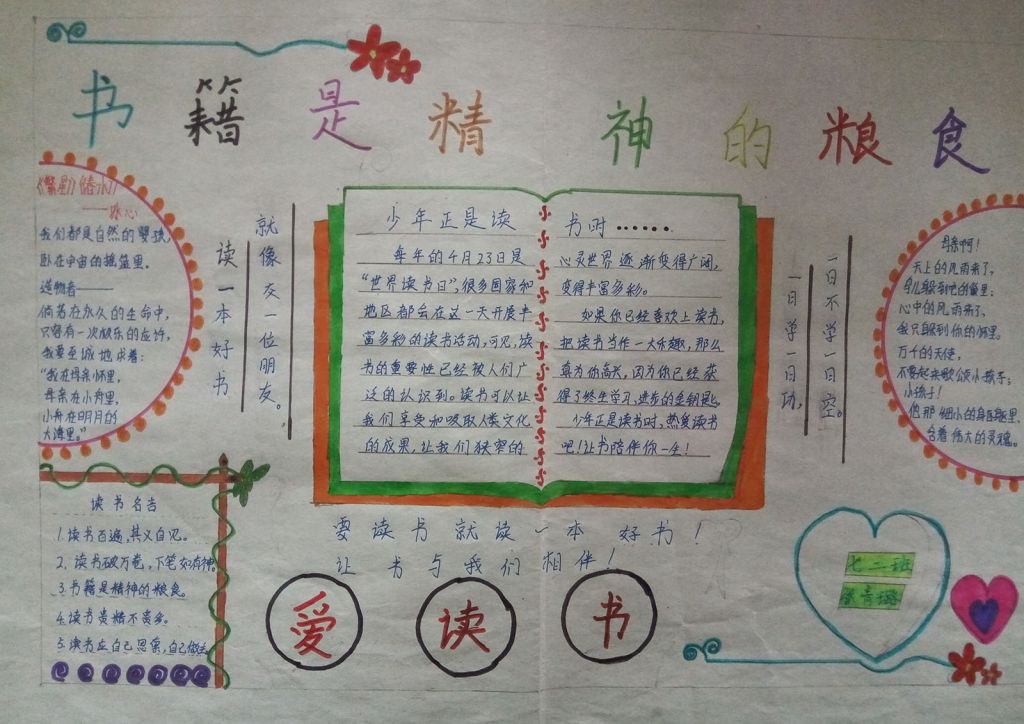 书籍是精神的粮食
《繁星》《春水》
——冰心
我们都是自然的婴孩,
卧在宇宙的摇篮里。
造物者——
倘若在永久的生命中,
只容有一次极乐的应许,
我要至诚地求着:
“我在母亲怀里,
母亲在小舟里,
小舟在明月的
大海里。”
读一本好书
就像交一位朋友。
少年正是读书时……
每年的4月23日是
“世界读书日”,很多国家和
地区都会在这一天开展丰
富多彩的读书活动,可见,读
书的重要性已经被人们广
泛的认识到。读书可以让
我们享受和吸取人类文化
的成果,让我们狭窄的
心灵世界逐渐变得广阔,
变得丰富多彩。
如果你已经喜欢上读书,
把读书当作一大乐趣,那么
真为你高兴,因为你已经获
得了终生学习,进步的金钥匙。
少年正是读书时,热爱读书
吧!让书陪伴你一生!
一日学一日功,
一日不学一日空。
母亲啊!
天上的风雨来了,
鸟儿躲到它的巢里;
心中的风雨来了,
我只躲到你的怀里。
万千的天使,
不要起来歌颂小孩子;
小孩子!
他那细小的身躯里,
含着伟大的灵魂。
读书名告
1.读书百遍,其义自见。
2.读书破万卷,下笔如有神。
3.书籍是精神的粮食。
4.读书贵精不贵多。
5.读书应自己思索,自己做主
要读书就读一本好书!
让书与我们相伴!
爱读书
七二班